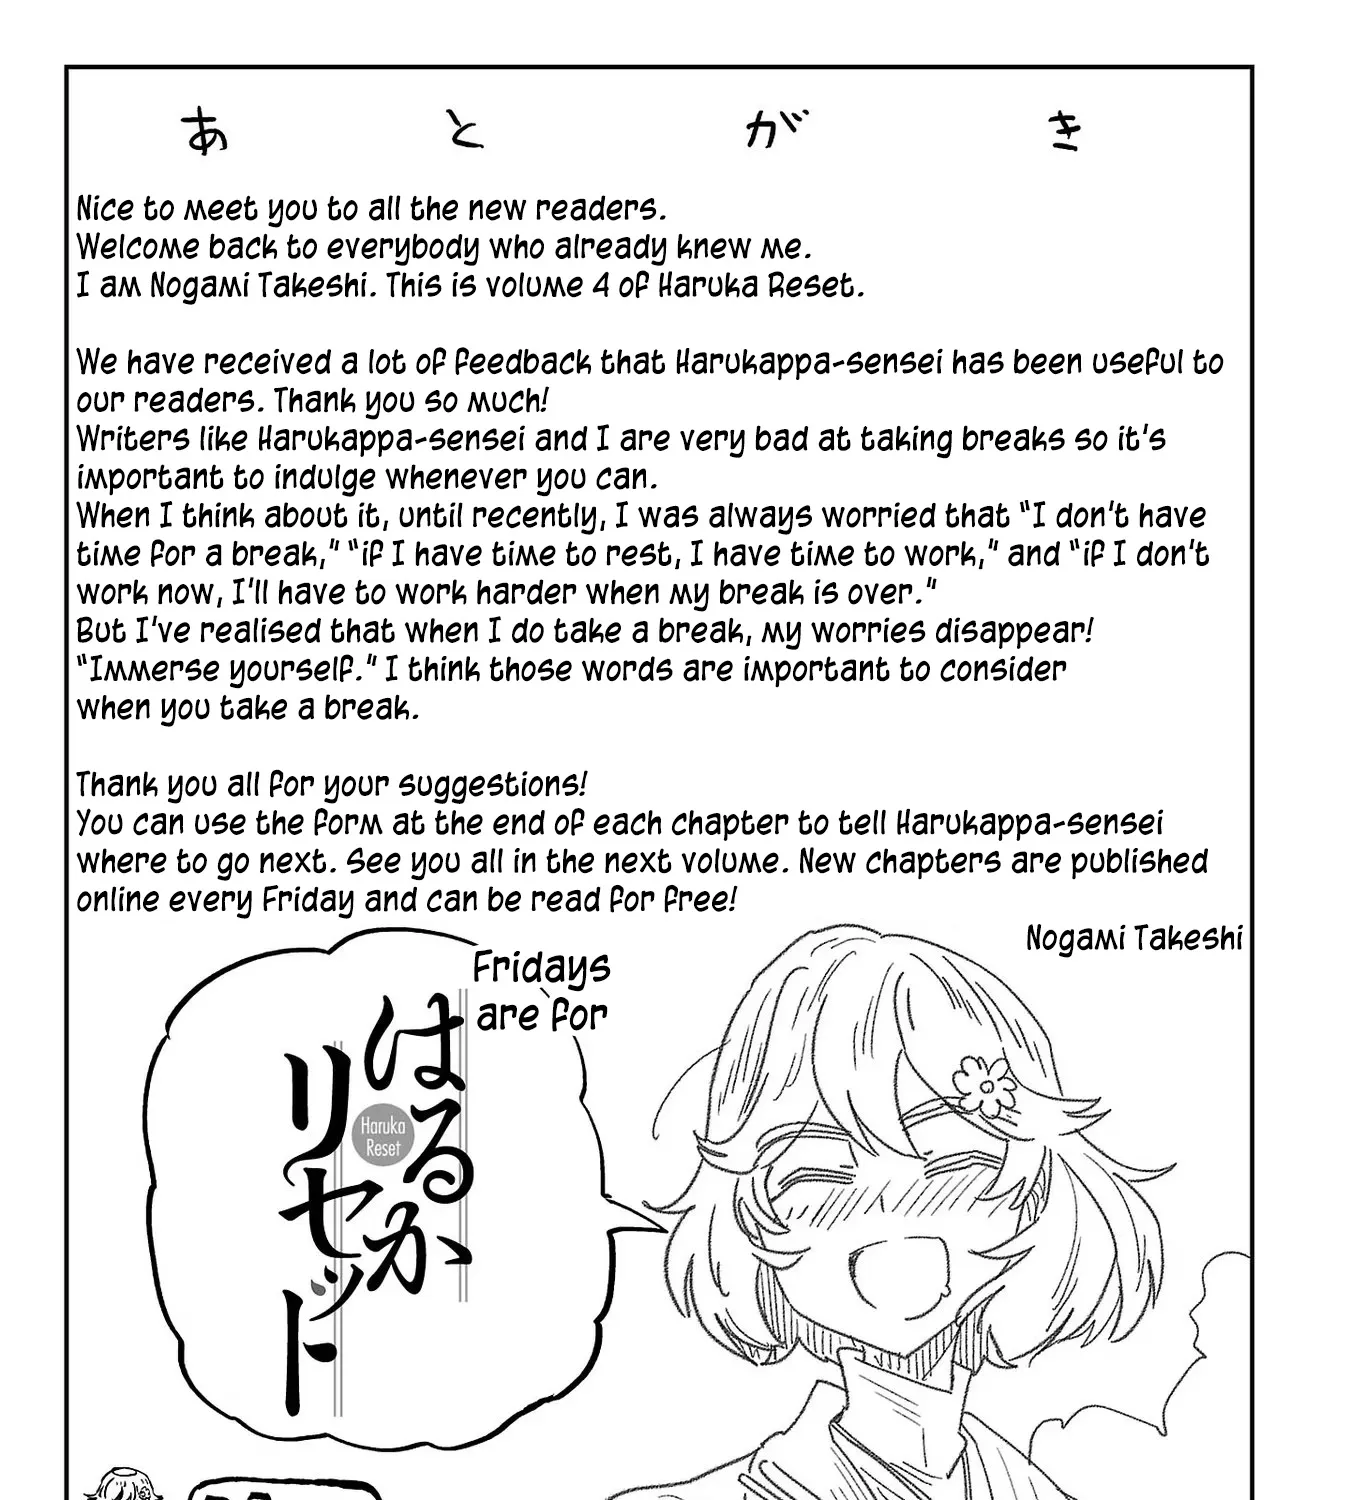 あとがき
Nice to meet you to all the new readers.
Welcome back to everybody who already knew me.
I am Nogami Takeshi. This is volume 4 of Haruka Reset.
We have received a lot of feedback that Harukappa-sensei has been useful to
our readers. Thank you so much!
Writers like Harukappa-sensei and I are very bad at taking breaks so it's
important to indulge whenever you can.
When I think about it, until recently, I was always worried that "I don't have
time for a break," "if I have time to rest, I have time to work," and "if I don't
work now, I'll have to work harder when my break is over."
But I've realised that when I do take a break, my worries disappear!
"Immerse yourself." I think those words are important to consider
when you take a break.
Thank you all for your suggestions!
You can use the form at the end of each chapter to tell Harukappa-sensei
where to go next. See you all in the next volume. New chapters are published
online every Friday and can be read for free!
Nogami Takeshi
Fridays
are for
はるか
リセット
Haruka
Reset